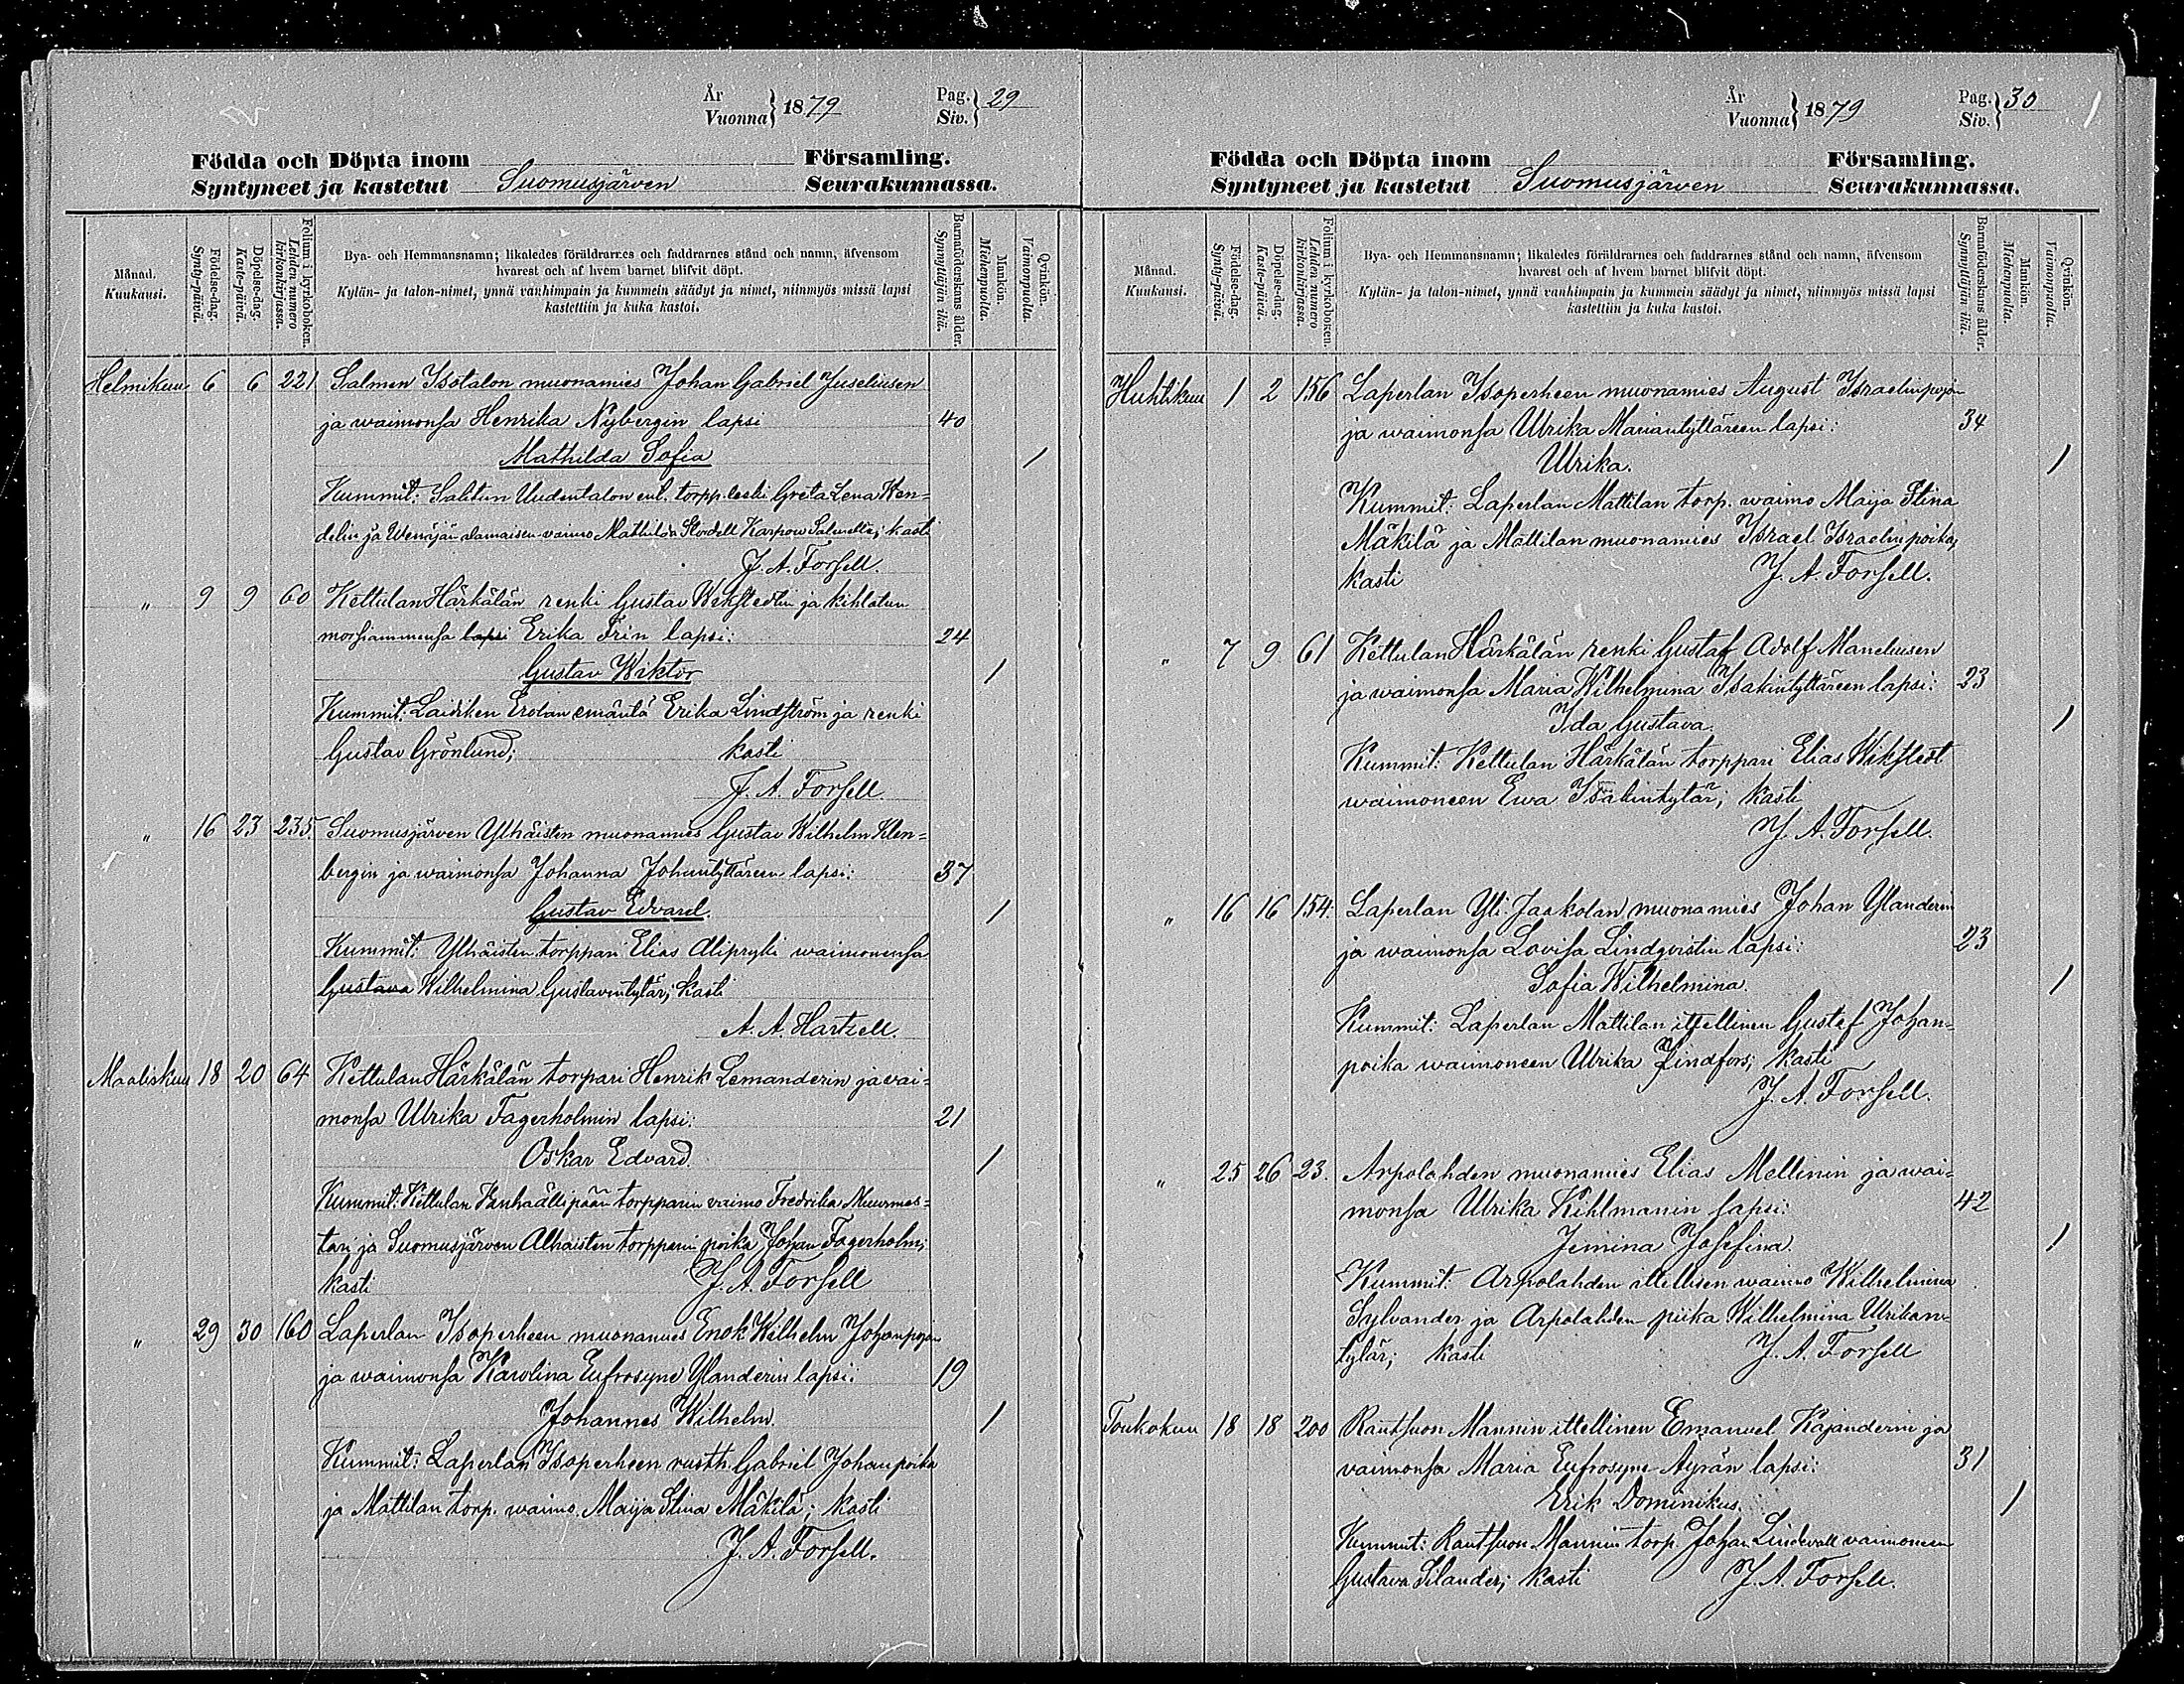 År
Vuonna} 1879
Pag.
Siv.} 29
Födda och Döpta inom Församling.
Syntyneet ja kastetut Suomusjärven Seurakunnassa.
Månad.
Kuukausi.
Födelse-dag.
Synty-päivä.
Döpelse-dag.
Kaste-päivä.
Folium i kyrkoboken.
Lehden numero kirkonkirjassa.
Bya- och Hemmansnamn; likaledes föräldrarnes och faddrarnes stånd och namn, äfvensom
hvarest och af hvem barnet blifvit döpt.
Kylän- ja talon-nimet, ynnä vanhimpain ja kummein säädyt ja nimet, niinmyös missä lapsi
kastettiin ja kuka kastoi.
Barnaföderskans ålder.
Synnyttäjän ikä.
Mankön.
Miehenpuolia.
Qvinkön.
Vaimonpuolia.
Helmikuu 6 6 221 Salmen Isotalon muonamies Johan Gabriel Juseliusen
ja waimonsa Henrika Nybergin lapsi 40
Mathilda Sofia 1
Kummit: Salitun Uudentalon ent. torpp. leski Greta Lena Wen=
delin ja Wenäjän alamaisen waimo Mathilda Karpow; kasti
J. A. Forsell.
" 9 9 60 Kettulan Härkälän renki Gustav Wekstedtin ja kihlatun
morsiammensa lapsi Erika Frin lapsi: 24
Gustav Wiktor 1
Kummit: Laidiken Erolan emäntä Erika Lindström ja renki
Gustav Grönlund; kasti
J. A. Forsell.
" 16 23 235. Suomusjärven Ylhäisten muonamies Gustav Wilhelm Klen=
bergin ja waimonsa Johanna Johanintyttären lapsi: 37
Gustav Edvard. 1
Kummit: Ylhäisten torppari Elias Alipryki waimonensa
Gustava Wilhelmina Gustavintytär; kasti
A. A. Hartzell.
Maaliskuu 18 20 64 Kettulan Härkälän torpari Henrik Lemanderin ja vai=
monsa Ulrika Fagerholmin lapsi: 21
Oskar Edvard. 1
Kummit: Kettulan torpparin vaimo Fredrika Muurmes=
tari ja Suomusjärven Alhaisten torpparin poika Johan Fagerholm;
kasti J. A. Forsell
" 29 30 160 Laperlan Isoperheen muonamies Enok Wilhelm Johanpojan
ja waimonsa Karolina Eufrosyne Ylanderin lapsi: 19
Johannes Wilhelm. 1
Kummit: Laperlan Isoperheen rusth. Gabriel Johanpoika
ja Mattilan torp. waimo Maija Stina Mäkilä; kasti
J. A. Forsell.
År
Vuonna} 1879
Pag.
Siv.} 30
Födda och Döpta inom Församling.
Syntyneet ja kastetut Suomusjärven Seurakunnassa.
Månad.
Kuukausi.
Födelse-dag.
Synty-päivä.
Döpelse-dag.
Kaste-päivä.
Folium i kyrkoboken.
Lehden numero kirkonkirjassa.
Bya- och Hemmansnamn; likaledes föräldrarnes och faddrarnes stånd och namn, äfvensom
hvarest och af hvem barnet blifvit döpt.
Kylän- ja talon-nimet, ynnä vanhimpain ja kummein säädyt ja nimet, niinmyös missä lapsi
kastettiin ja kuka kastoi.
Barnaföderskans ålder.
Synnyttäjän ikä.
Mankön.
Miehenpuolia.
Qvinkön.
Vaimonpuolia.
Huhtikuu 1 2 156 Laperlan Isoperheen muonamies August Israelinpojan
ja waimonsa Ulrika Mariantyttäreen lapsi: 34
Ulrika. 1
Kummit: Laperlan Mattilan torp. waimo Maija Stina
Mäkilä ja Mattilan muonamies Israel Israelinpoika,
kasti J. A. Forsell.
" 7 9 61 Kettulan Härkälän renki Gustaf Adolf Maneliusen
ja waimonsa Maria Wilhelmina Isakintyttäreen lapsi: 23
Ida Gustava. 1
Kummit: Kettulan Härkälän torppari Elias Wikstedt
waimoneen Ewa Isakintytär; kasti
J. A. Forsell.
" 16 16 154. Laperlan Yli-Jaakolan muonamies Johan Ylanderin
ja waimonsa Lovisa Lindqvistin lapsi: 23
Sofia Wilhelmina. 1
Kummit: Laperlan Mattilan itsellinen Gustaf Johan=
poika waimoneen Ulrika Lindfors; kasti
J. A. Forsell.
" 25 26 23. Arpolahden muonamies Elias Mellinin ja wai=
monsa Ulrika Kihlmanin lapsi: 42
Jemina Josefina. 1
Kummit: Arpolahden itsellisen waimo Wilhelmina
Sylvander ja Arpolahden piika Wilhelmina Ulrikan=
tytär; kasti J. A. Forsell
Toukokuu 18 18 200 Rautsuon Mannin itsellinen Emanuel Kajanderin ja
vaimonsa Maria Eufrosyne Äyrän lapsi: 31
Erik Dominikus. 1
Kummit: Rautsuon Mannin torp. Johan Lindvall vaimoneen
Gustava Silander; kasti J. A. Forsell.